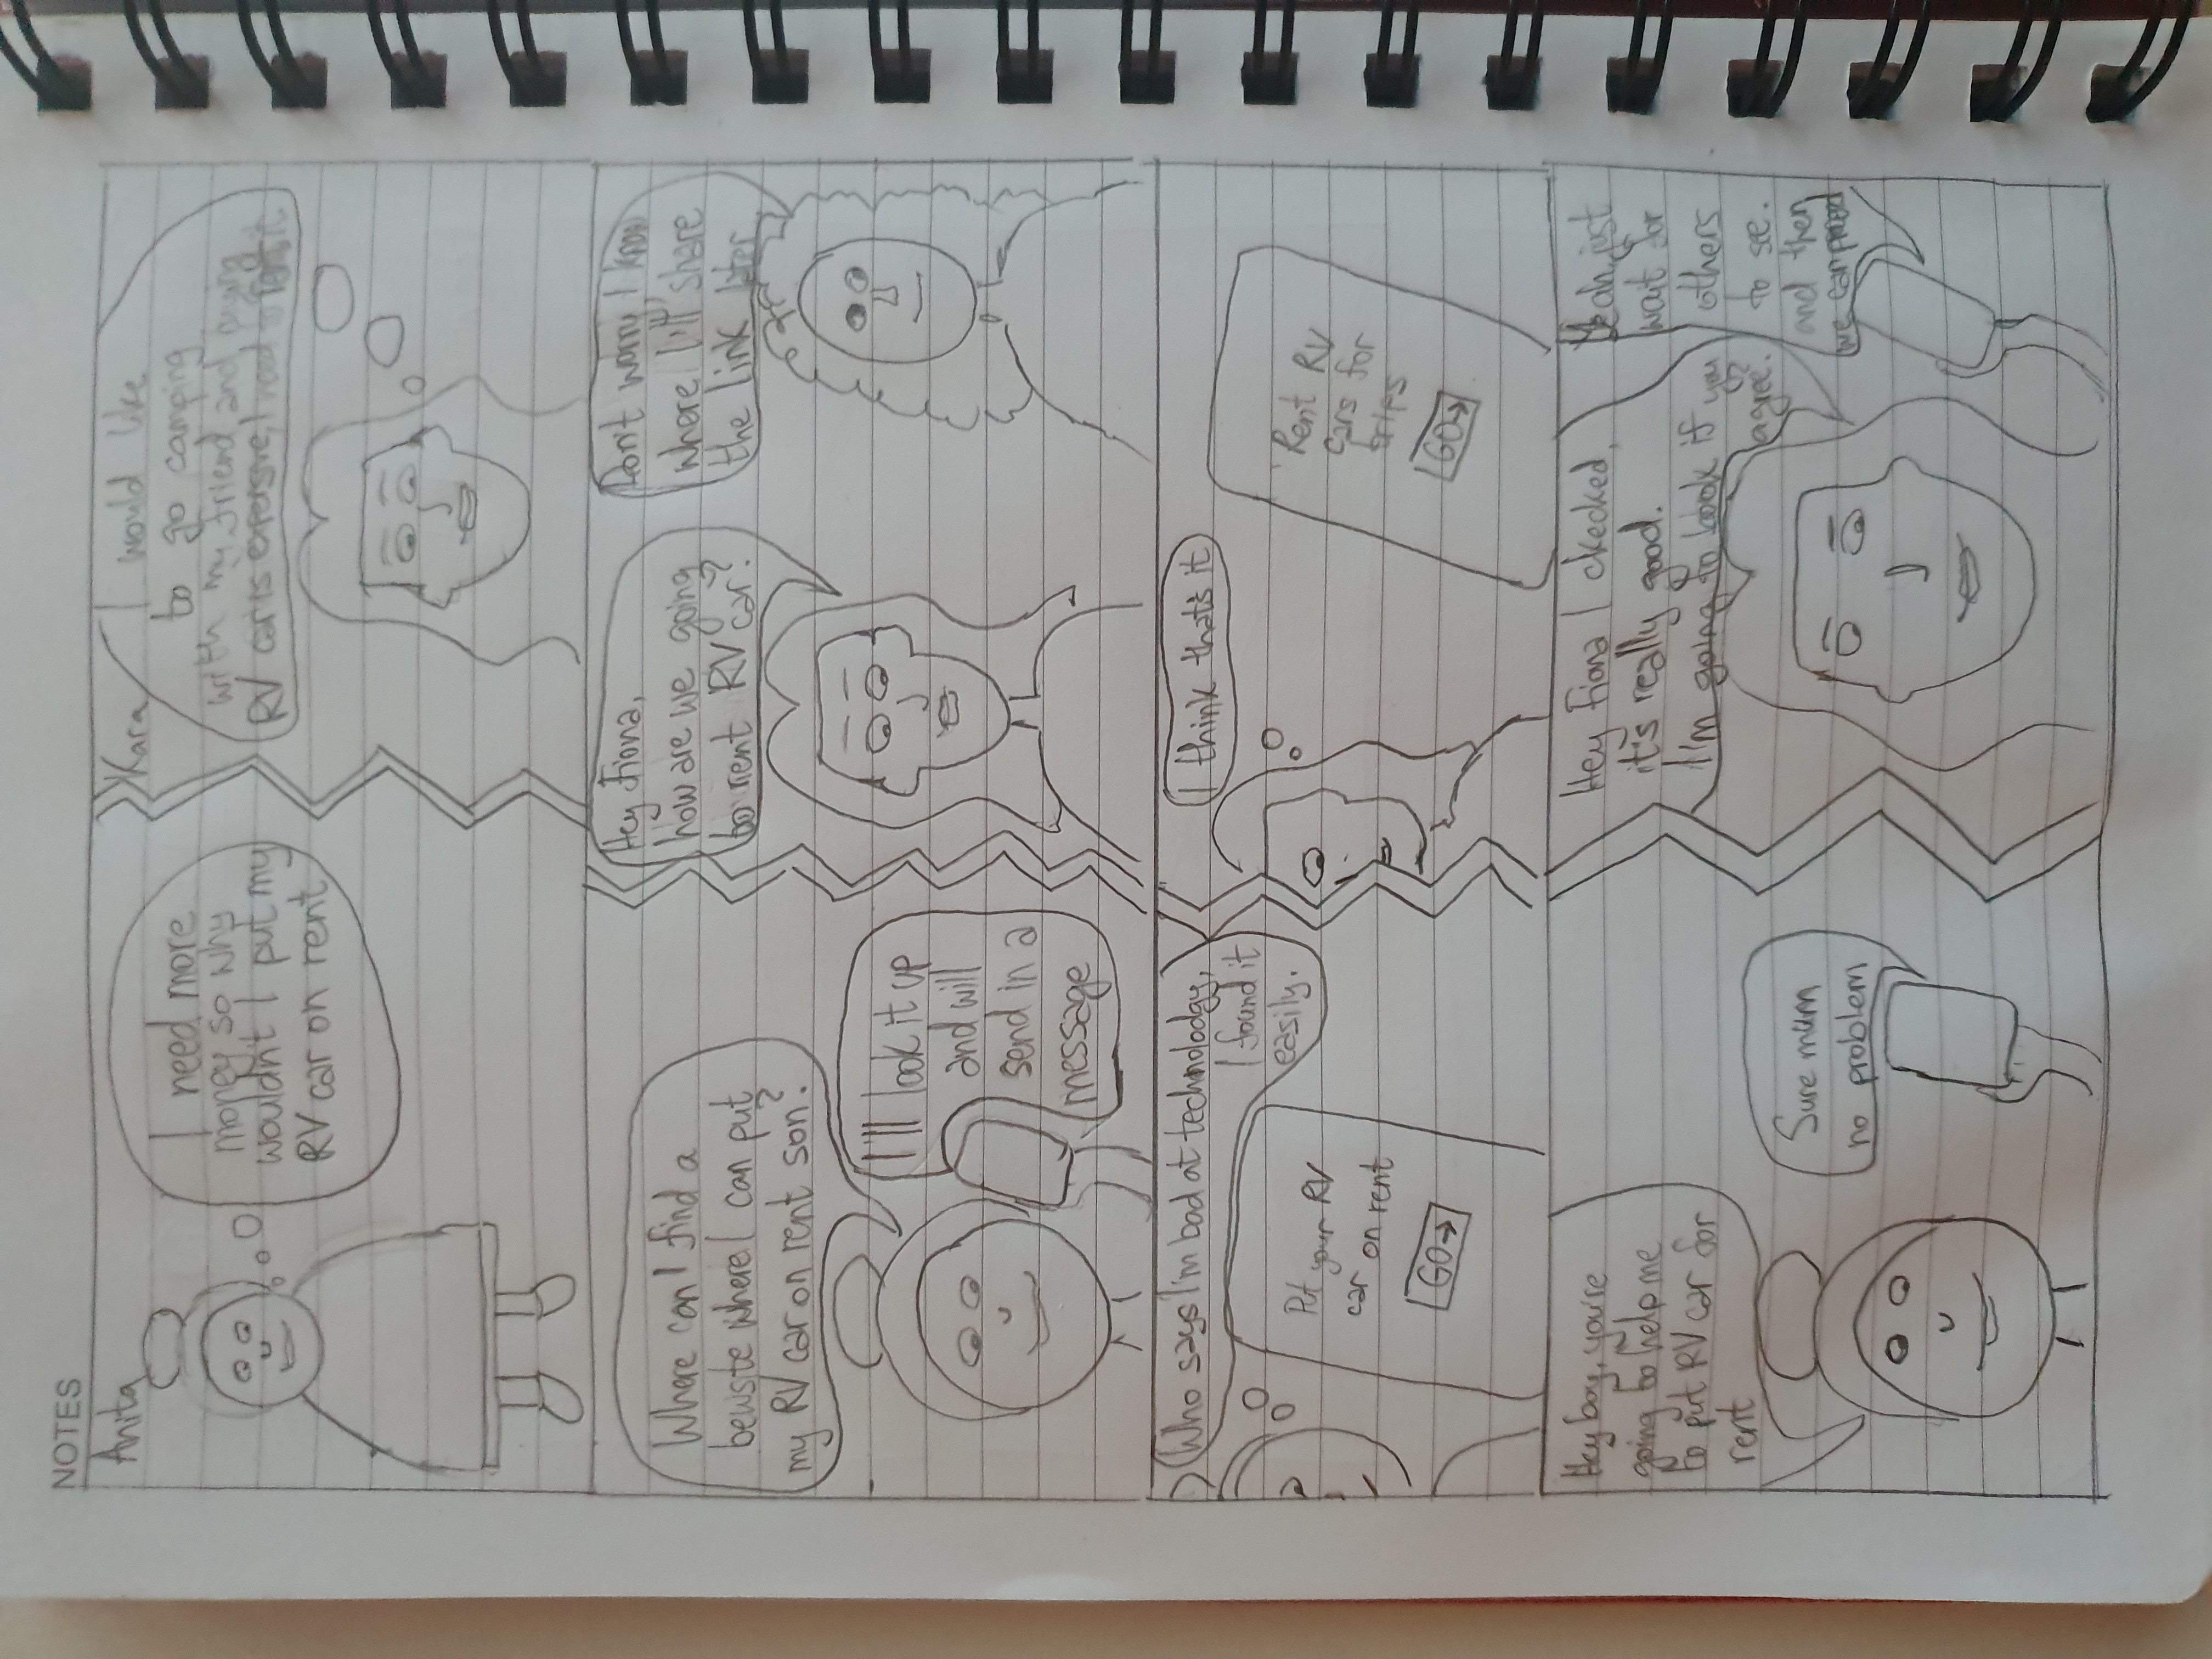 NOTES
Anita
I need more
money so why
wouldn't I put my
RV car on rent
Kara
I would like
to go camping
with my friend and buying
RV car is expensive, I need to rent it
Where can I find a
bewsite where I can put
my RV car on rent son?
I'll look it up
and will
send in a
message
Hey Fiona,
how are we going
to rent RV car?
Don't worry, I know
where. I'll share
the link later
Who says I'm bad at technolodgy,
I found it
easily.
Put your RV
car on rent
GO→
I think that's it
Rent RV
cars for
trips
GO→
Hey boy, you're
going to help me
to put RV car for
rent
Sure mum
no problem
Hey Fiona I ckecked,
it's really good.
I'm going to book if you
agree?
Yeah, just
wait for
others
to see.
and then
we can proceed